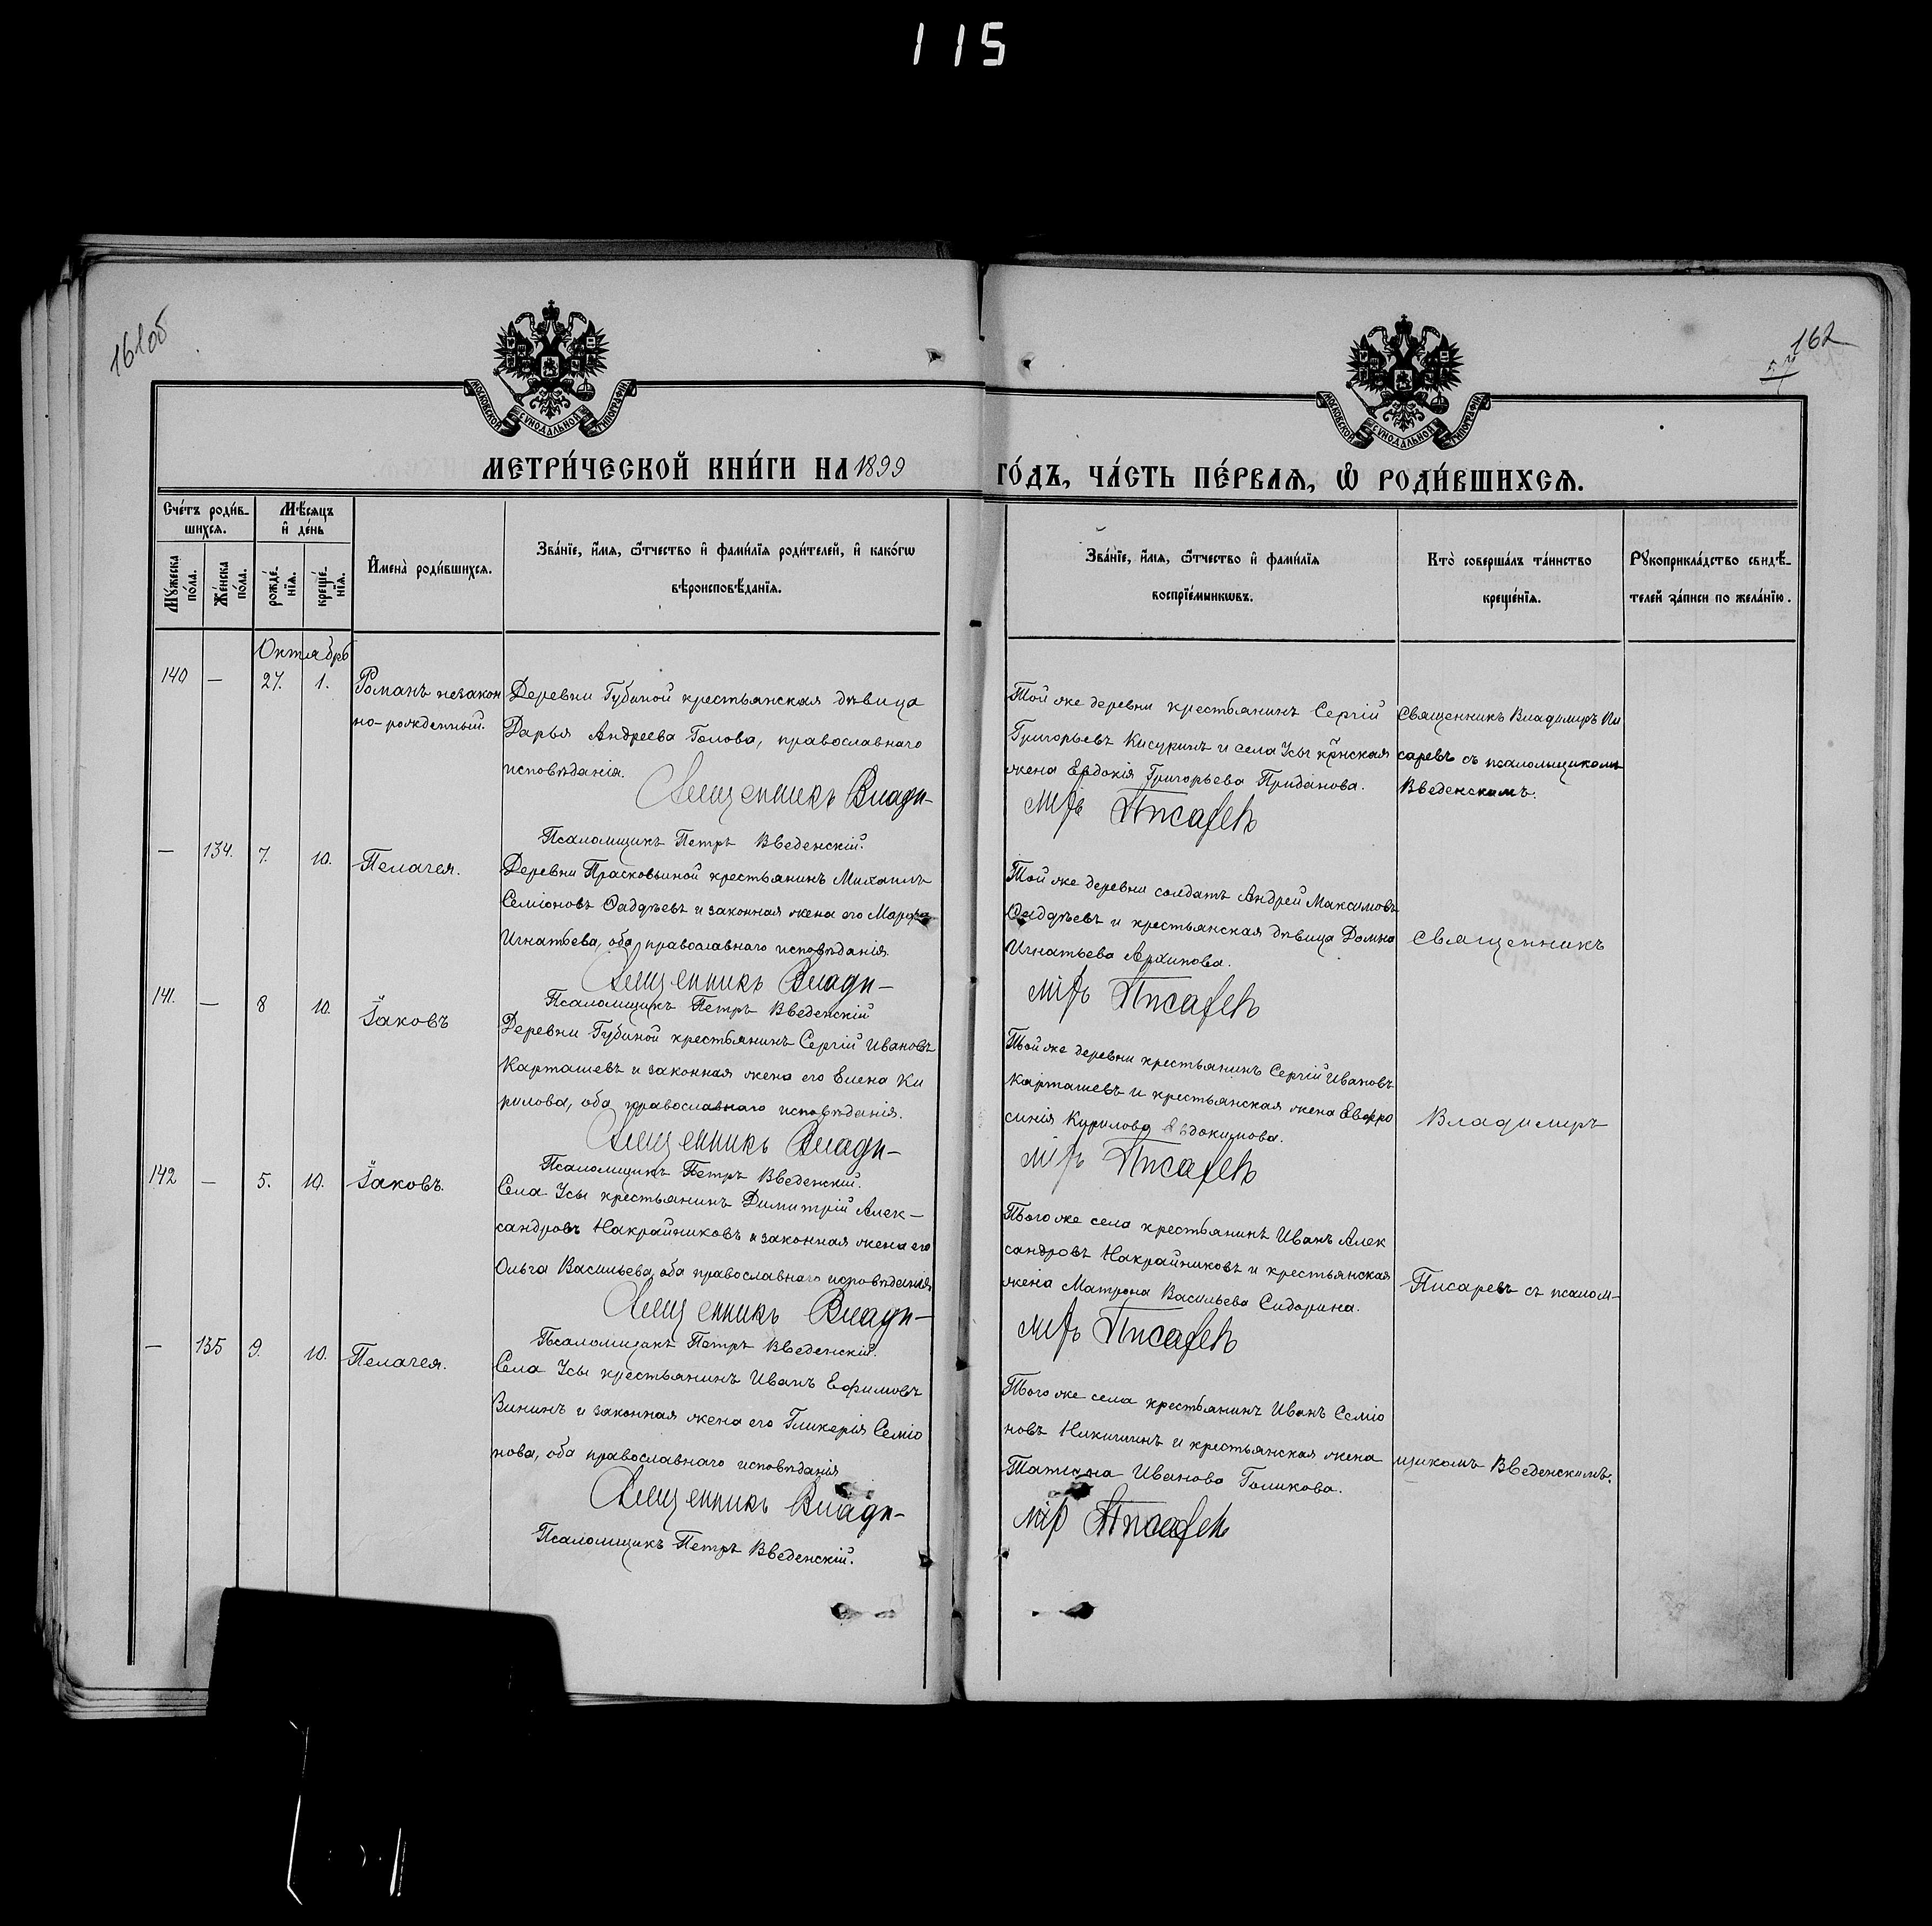 115
161об
162
МОСКОВСКОЙ СѴНОДАЛЬНОЙ ТИПОГРАФІИ
МОСКОВСКОЙ СѴНОДАЛЬНОЙ ТИПОГРАФІИ
МЕТРИ́ЧЕСКОЙ КНИ́ГИ НА 1899 ГО́ДЪ, ЧА́СТЬ ПЕ́РВАЯ, Ѡ҆ РОДИ́ВШИХСЯ.
Сче́тъ роди́в-
шихся.
Мѣ́сяцъ
и҆ де́нь
Мꙋ́жеска
по́ла.
Же́нска
по́ла.
рожде́-
нїя.
креще́-
нїя.
И҆мена̀ роди́вшихся.
Зва́нїе, и҆́мя, ѻ҆́тчество и҆ фами́лїя роди́телей, и҆ како́гѡ
вѣроисповѣ́данїя.
Зва́нїе, и҆́мя, ѻ҆́тчество и҆ фами́лїя
воспрїе́мникѡвъ.
Кто̀ соверша́лъ та́инство
креще́нїя.
Рꙋкоприкла́дство свидѣ́-
телей за́писи по жела́нїю.
Октябрь
140 — 27. 1. Романъ незакон
но-рожденный.
Деревни Губиной крестьянская дѣвица
Дарья Андреева Голова, православнаго
исповѣданія.
Священникъ Влади-
Псаломщикъ Петръ Введенскій.
Той же деревни крестьянинъ Сергій
Григорьевъ Кисуринъ и села Усы кр̃нская
жена Евдокія Григорьева Приданова.
міръ Писаревъ
Священникъ Владимиръ Пи
саревъ съ псаломщикомъ
Введенскимъ.
— 134. 7. 10. Пелагея.
Деревни Прасковьиной крестьянинъ Михаилъ
Семіоновъ Фаддѣевъ и законная жена его Марфа
Игнатьева, оба православнаго исповѣданія.
Священникъ Влади-
Псаломщикъ Петръ Введенскій
Той же деревни солдатъ Андрей Максимовъ
Фаддѣевъ и крестьянская дѣвица Домна
Игнатьева Архипова.
міръ Писаревъ
Священникъ
141. — 8 10. Іаковъ
Деревни Губиной крестьянинъ Сергій Ивановъ
Карташевъ и законная жена его Елена Ки
рилова, оба православнаго исповѣданія.
Священникъ Влади-
Псаломщикъ Петръ Введенскій.
Той же деревни крестьянинъ Сергій Ивановъ
Карташевъ и крестьянская жена Евфро
синія Курилова Евдокимова.
міръ Писаревъ
Владимиръ
142 — 5. 10. Іаковъ.
Села Усы крестьянинъ Димитрій Алек-
сандровъ Накрайниковъ и законная жена его
Ольга Васильева, оба православнаго исповѣданія.
Священникъ Влади-
Псаломщикъ Петръ Введенскій.
Того же села крестьянинъ Иванъ Алек
сандровъ Накрайниковъ и крестьянская
жена Матрона Васильева Сидорина.
міръ Писаревъ
Писаревъ съ псалом-
— 135 9. 10. Пелагея.
Села Усы крестьянинъ Иванъ Ефимовъ
Зининъ и законная жена его Гликерія Семіо
нова, оба православнаго исповѣданія
Священникъ Влади-
Псаломщикъ Петръ Введенскій.
Того же села крестьянинъ Иванъ Семіо
новъ Никишинъ и крестьянская жена
Татіана Иванова Голикова.
мір Писаревъ
щикомъ Введенскимъ.